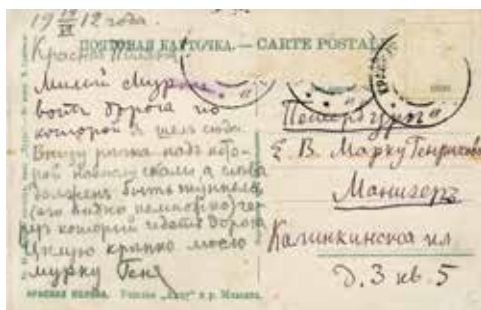 19 19/VI 12 года.
Красная Поляна
ПОЧТОВАЯ КАРТОЧКА. — CARTE POSTALE
Милый Мурка
вотъ дорога по
которой я шелъ сюда
Внизу рѣчка надъ кото-
рой скалы а слѣва
долженъ быть туннель
(его видно немножко) че-
резъ который идетъ дорога
Цѣлую крѣпко мою
мурку Геня
Петербургъ
Е. В. Марку Генрих
Манизеръ
Калинкинская пл.
д. 3 кв. 5
КРАСНАЯ ПОЛЯНА. Ущелье